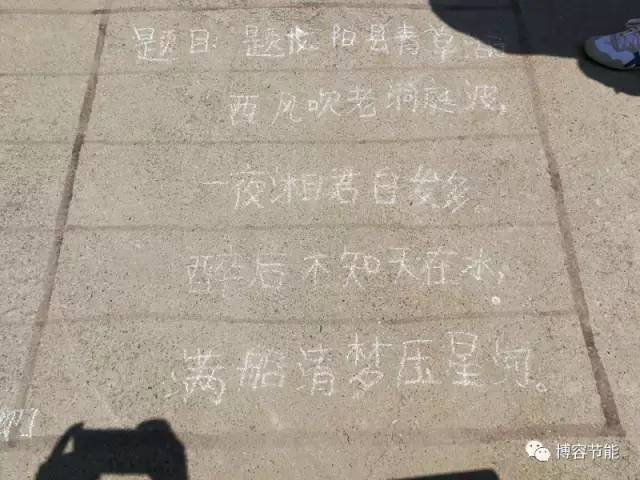 题目: 题龙阳县青草湖
西风吹老洞庭波,
一夜湘君白发多
醉后不知天在水,
满船清梦压星河。
博容节能